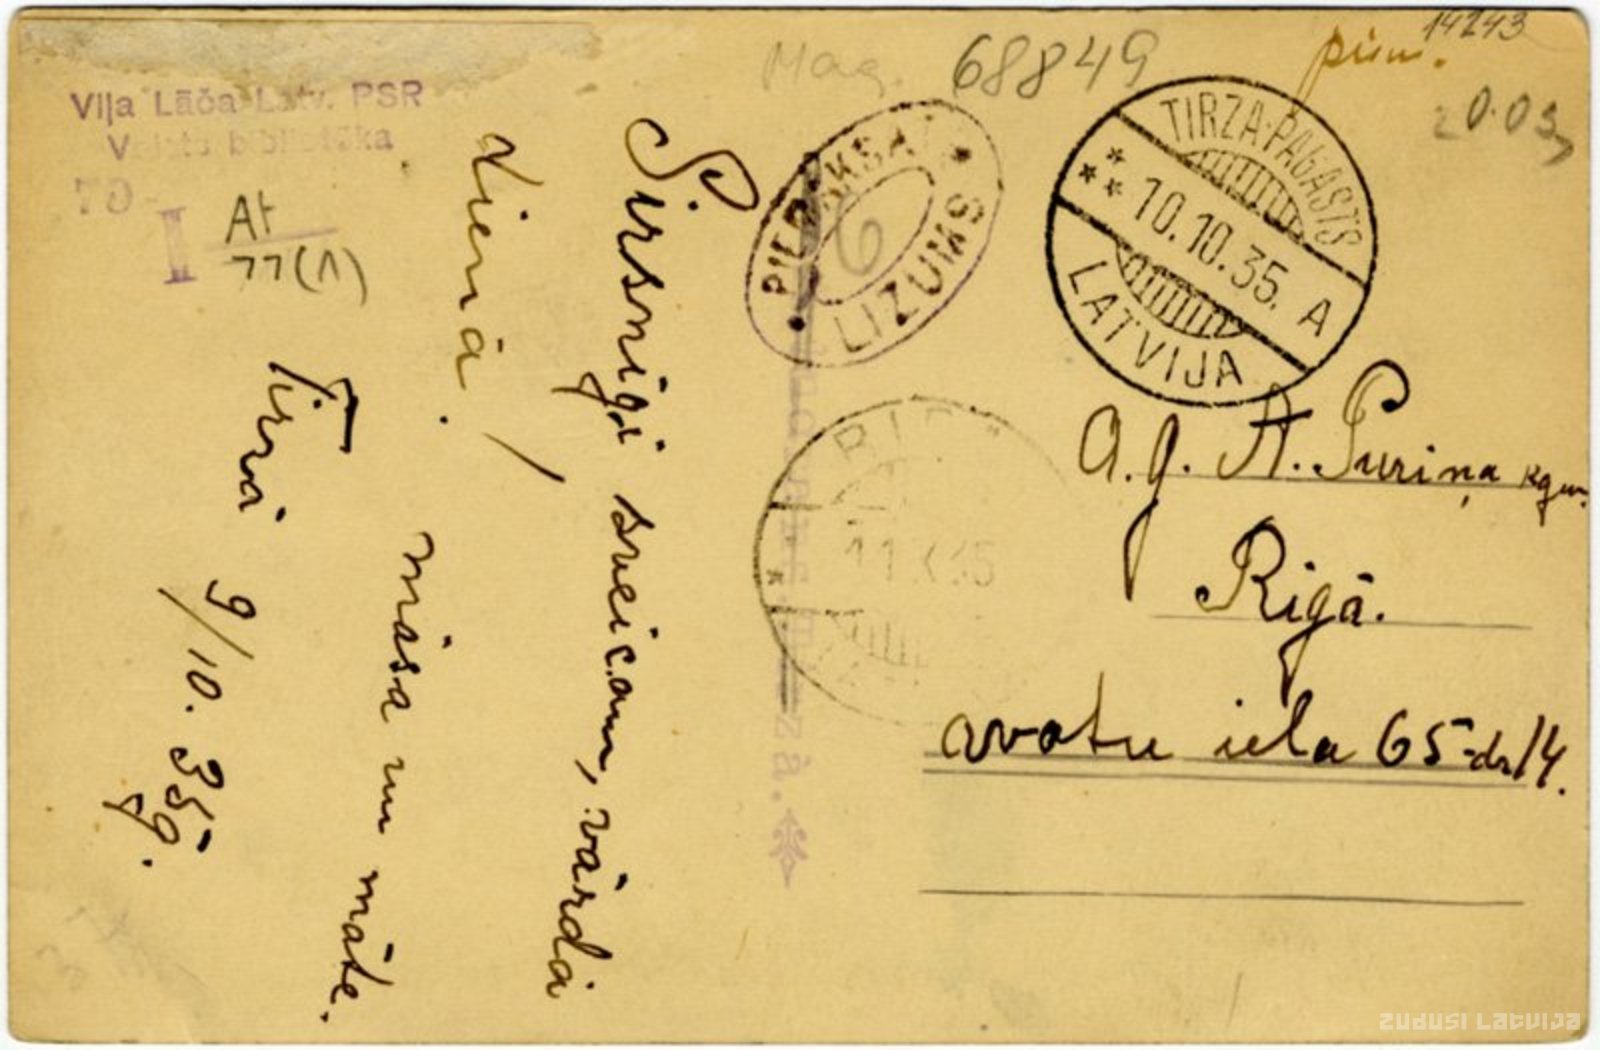 14243
pirm.
Mag. 68849
Viļa Lāča Latv. PSR
Valsts bibliotēka
79-
I
At
77(1)
LIZUMS
6
TIRZA-PAGASTS
10.10.35. A
LATVIJA
11 X 35
Sirsnīgi sveicam, vārda
dienā.
māsa un māte.
Tirzā 9/10. 35g.
A. g. A. Puriņa kgm.
Rīgā.
avotu iela 65-dz 14.
ZUDUSI LATVIJA